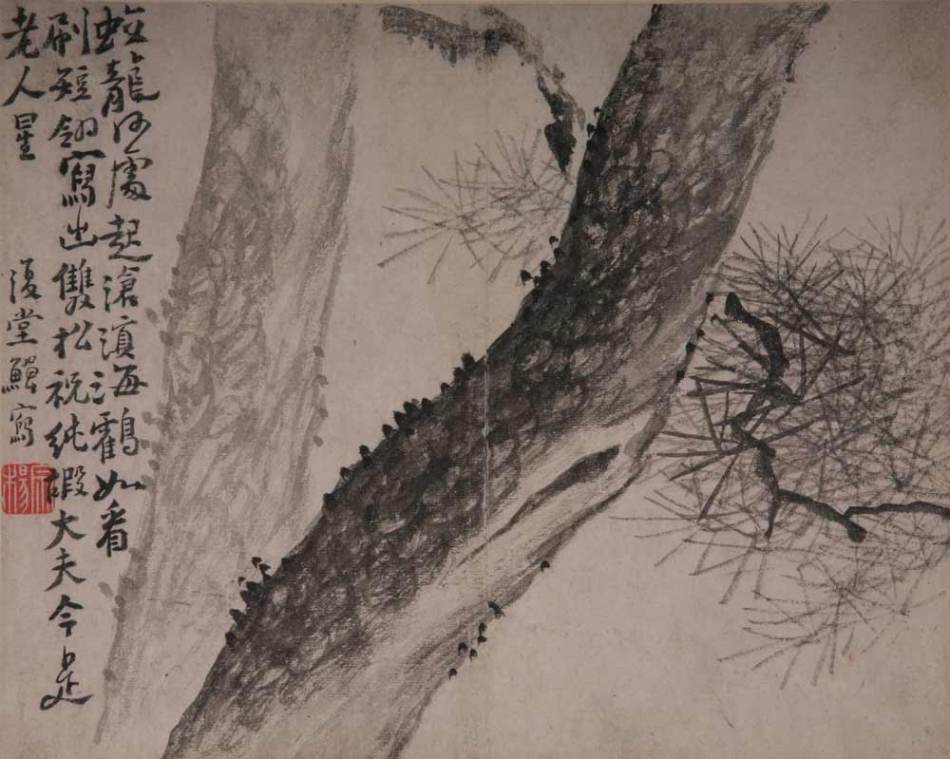 蛟龍何處起滄溟海鶴如看
刷短翎寫出雙松祝純嘏大夫今是
老人星
復堂鱓寫
宗揚